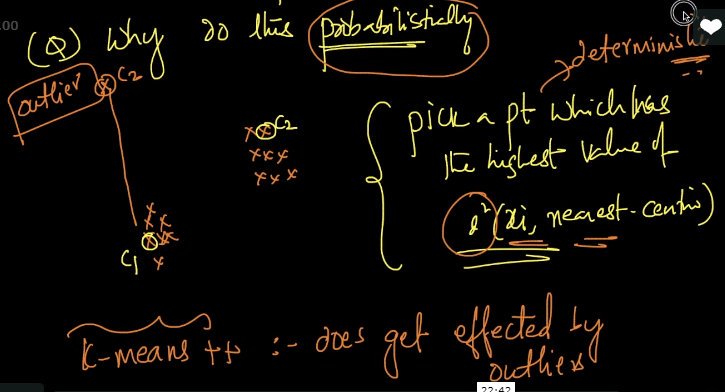 .00
(Q) Why do this probabilistically
deterministic
outlier C2
C2
C1
pick a pt which has
the highest value of
d²(xi, nearest-centroid)
K-means ++ :- does get effected by
outliers
22:42